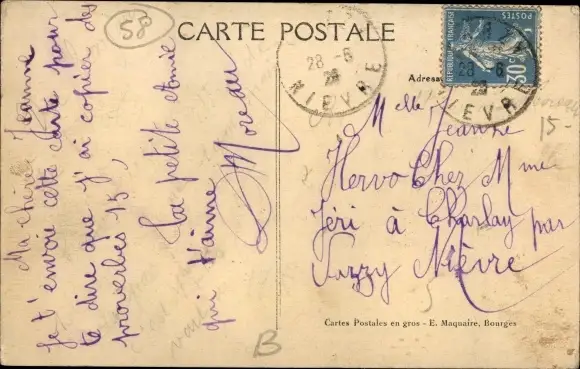 58
CARTE POSTALE
Ma chère Jeanne
Je t'envoie cette carte pour
te dire que j'ai copier des
proverbes 15,
La petite amie
qui t'aime
Moreau
28-6
NIEVRE
RÉPUBLIQUE FRANÇAISE
POSTES
30c
28-6
NIEVRE
Adresse
Melle Jeanne
Hervo Chez Mme
Jéri à Charlay par
Varzy Nièvre
15-
B
Cartes Postales en gros - E. Maquaire, Bourges